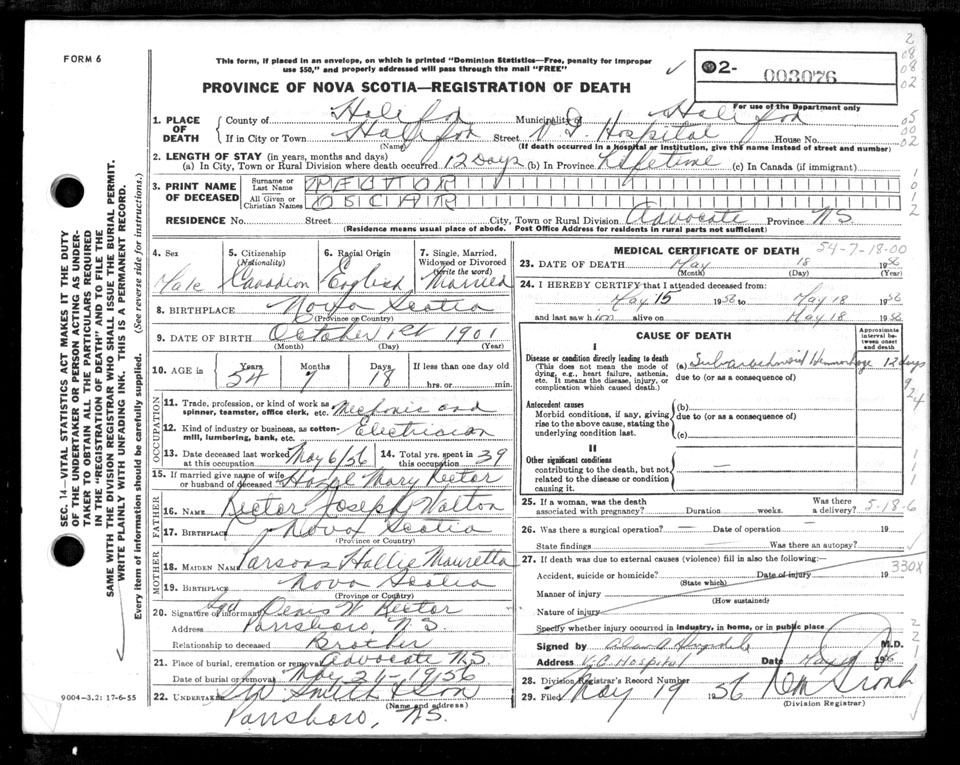 FORM 6
This form, if placed in an envelope, on which is printed "Dominion Statistics—Free, penalty for improper
use $50," and properly addressed will pass through the mail "FREE"
2- 003076
For use of the Department only
PROVINCE OF NOVA SCOTIA—REGISTRATION OF DEATH
1. PLACE OF DEATH
County of Halifax Municipality Halifax
If in City or Town Halifax Street V G Hospital House No.
(Name) (If death occurred in a Hospital or Institution, give the name instead of street and number)
2. LENGTH OF STAY (in years, months and days)
(a) In City, Town or Rural Division where death occurred 12 Days (b) In Province Lifetime (c) In Canada (if immigrant)
3. PRINT NAME OF DECEASED
Surname or Last Name RECTOR
All Given or Christian Names OSCAR
RESIDENCE No. Street City, Town or Rural Division Advocate Province NS
(Residence means usual place of abode. Post Office Address for residents in rural parts not sufficient)
4. Sex Male
5. Citizenship (Nationality) Canadian
6. Racial Origin English
7. Single, Married, Widowed or Divorced (Write the word) Married
8. BIRTHPLACE Nova Scotia
(Province or Country)
9. DATE OF BIRTH October 1st 1901
(Month) (Day) (Year)
10. AGE in Years 54 Months 7 Days 18 If less than one day old hrs. or min.
OCCUPATION
11. Trade, profession, or kind of work as spinner, teamster, office clerk, etc. Mechanic and
12. Kind of industry or business, as cotton-mill, lumbering, bank, etc. Electrician
13. Date deceased last worked at this occupation May 6/56
14. Total yrs. spent in this occupation 39
15. If married give name of wife or husband of deceased Hazel Mary Rector
FATHER
16. NAME Rector Joseph Walton
17. BIRTHPLACE Nova Scotia
(Province or Country)
MOTHER
18. MAIDEN NAME Parsons Hallie Mauretta
19. BIRTHPLACE Nova Scotia
(Province or Country)
20. Signature of informant Sgd Denis W Rector
Address Parrsboro, N.S.
Relationship to deceased Brother
21. Place of burial, cremation or removal Advocate N.S.
Date of burial or removal May 21-1956
22. UNDERTAKER Smith & Son
(Name and address)
Parrsboro, N.S.
MEDICAL CERTIFICATE OF DEATH 54-7-18-00
23. DATE OF DEATH May 18 1956
(Month) (Day) (Year)
24. I HEREBY CERTIFY that I attended deceased from:
May 15 1956 to May 18 1956
and last saw him alive on May 18 1956
CAUSE OF DEATH
Approximate interval between onset and death
I
Disease or condition directly leading to death
(This does not mean the mode of dying, e.g., heart failure, asthenia, etc. It means the disease, injury, or complication which caused death.)
(a) Subarachnoid Hemorrhage 12 days
due to (or as a consequence of)
Antecedent causes
Morbid conditions, if any, giving rise to the above cause, stating the underlying condition last.
(b)
due to (or as a consequence of)
(c)
II
Other significant conditions
contributing to the death, but not related to the disease or condition causing it.
25. If a woman, was the death associated with pregnancy? Duration weeks. Was there a delivery? 5-18-6
26. Was there a surgical operation? — Date of operation —
State findings Was there an autopsy?
27. If death was due to external causes (violence) fill in also the following: 330X
Accident, suicide or homicide? Date of injury 19
(State which)
Manner of injury
(How sustained)
Nature of injury
Specify whether injury occurred in industry, in home, or in public place
Signed by M.D.
Address V.G. Hospital Date May
28. Division Registrar's Record Number
29. Filed May 19 1956
(Division Registrar)
SEC. 14—VITAL STATISTICS ACT MAKES IT THE DUTY
OF THE UNDERTAKER OR PERSON ACTING AS UNDER-
TAKER TO OBTAIN ALL THE PARTICULARS REQUIRED
IN THE "REGISTRATION OF DEATH" AND TO FILE THE
SAME WITH THE DIVISION REGISTRAR WHO SHALL ISSUE THE BURIAL PERMIT.
WRITE PLAINLY WITH UNFADING INK. THIS IS A PERMANENT RECORD.
Every item of information should be carefully supplied. (See reverse side for instructions.)
9004-3.2: 17-6-55